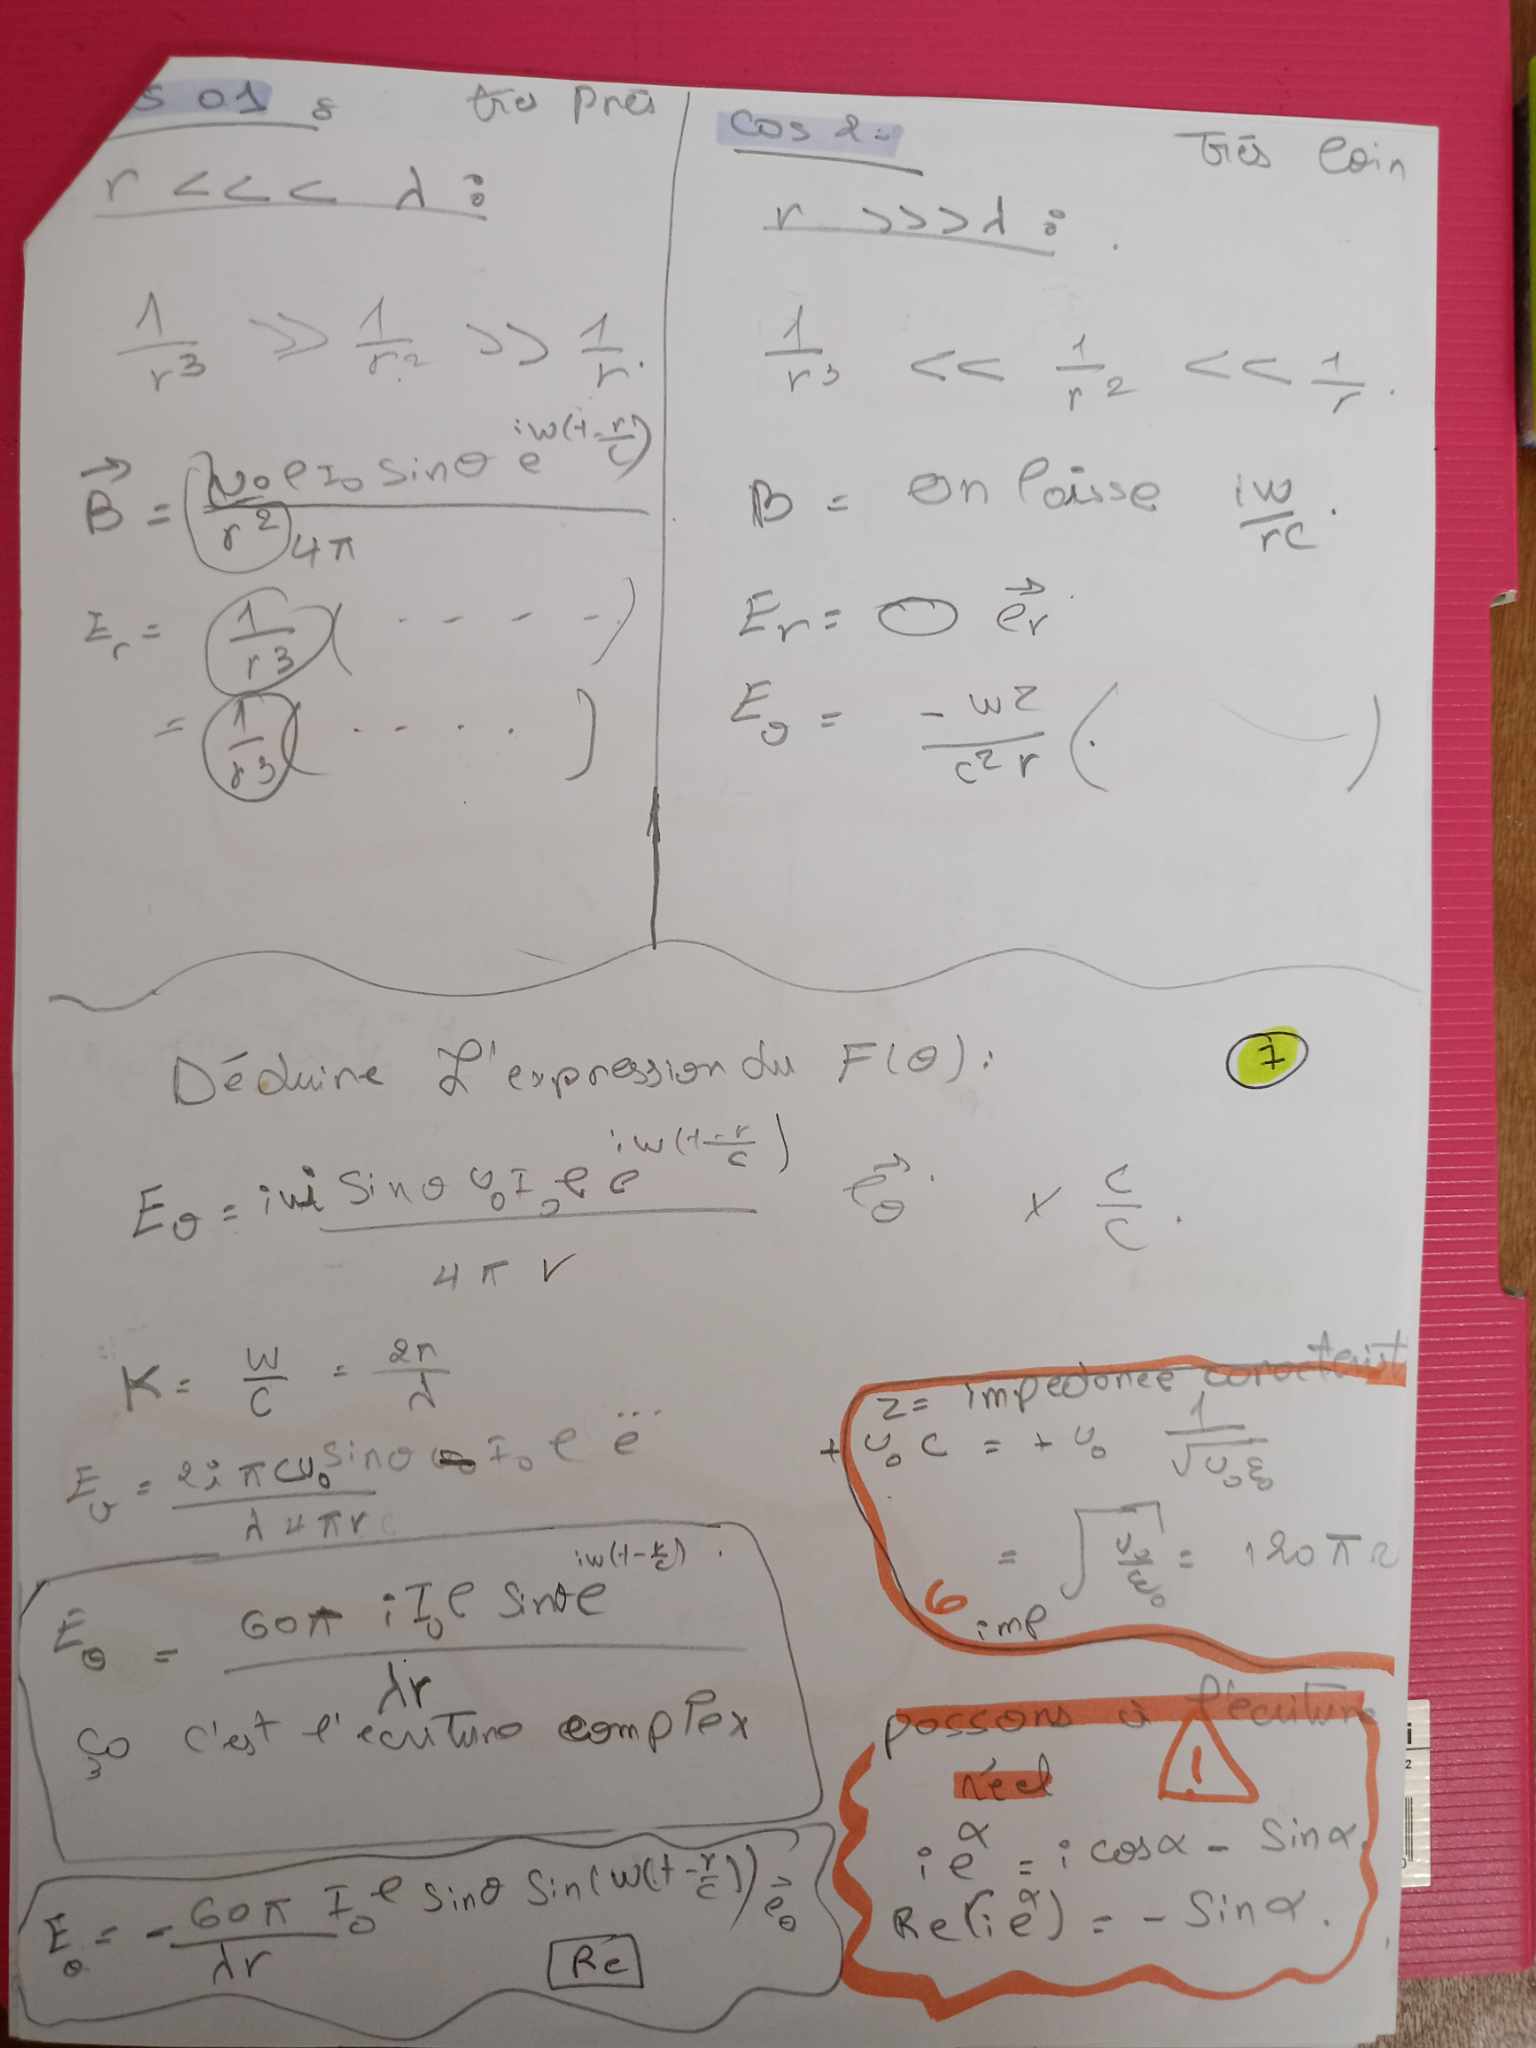 s 01 : très près
r <<< λ :
1/r³ >> 1/r² >> 1/r.
B⃗ = μ₀ l I₀ sinθ e^{iw(t-r/c)} / r² 4π
E_r = 1/r³ ( - - - - )
= 1/r³ ( - . . . . )
Cas 2 = très loin
r >>> λ :
1/r³ << 1/r² << 1/r.
B = on laisse iw/rc.
E_r = 0 e⃗r
E_θ = -w²/c²r ( )
Déduire L'expression du F(θ) :
7
E_θ = iw sinθ μ₀ I₀ l e^{iw(t-r/c)} / 4πr e⃗_θ × c/c.
K = w/c = 2π/λ
E_θ = 2iπcμ₀ sinθ I₀ l e^{...} / λ4πr
E⃗_θ = 60π i I₀ l sinθ e^{iw(t-r/c)} / λr
ça c'est l'ecriture complex
E_θ = -60π/λr I₀ l sinθ sin(w(t-r/c)) e⃗_θ
Re
Z = impedance caracterist
+ μ₀ c = + μ₀ 1/√μ₀ε₀
= √μ₀/ε₀ = 120π Ω
6 imp
passons à l'écriture
réel
!
i e^α = i cosα - sinα.
Re(i e^α) = - sinα.